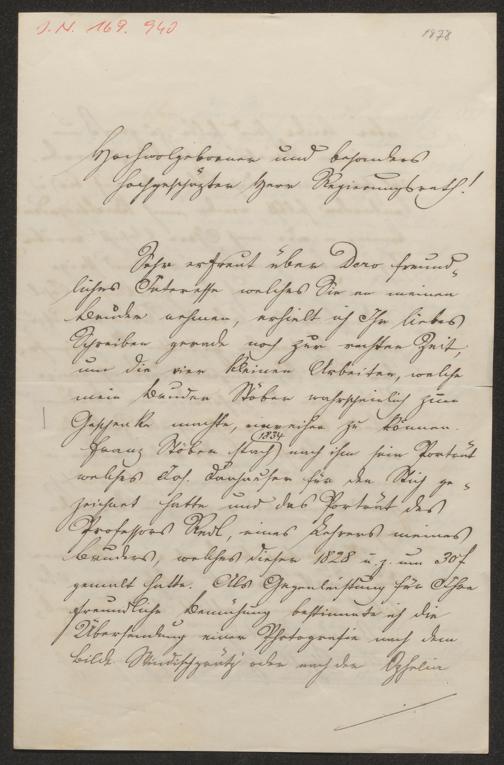 J.N. 169.940
1878
Hochwolgeborner und besonders
hochgeschäzter Herr Regierungsrath!
Sehr erfreut über Dero freund-
liches Interesse welches Sie an meinen
Bruder nehmen, erhielt ich Ihr liebes
Schreiben gerade noch zur rechten Zeit,
um die vier kleinen Arbeiten, welche
mein Bruder Stöber wahrscheinlich zum
Geschenke machte, zu können.
Franz Stöber stach 1834 nach ihm sein Porträt
welches Jos. Danhauser für den Stich ge-
zeichnet hatte und das Porträt des
Professors Redl, eines Lehrers meines
Bruders, welches dieser 1828 u. z. um 30 f
gemalt hatte. Als Gegenleistung für Ihre
freundliche Bemühung bestimmte ich die
Übersendung einer Photografie nach dem
Bilde Windischgrätz oder nach der Ophelia